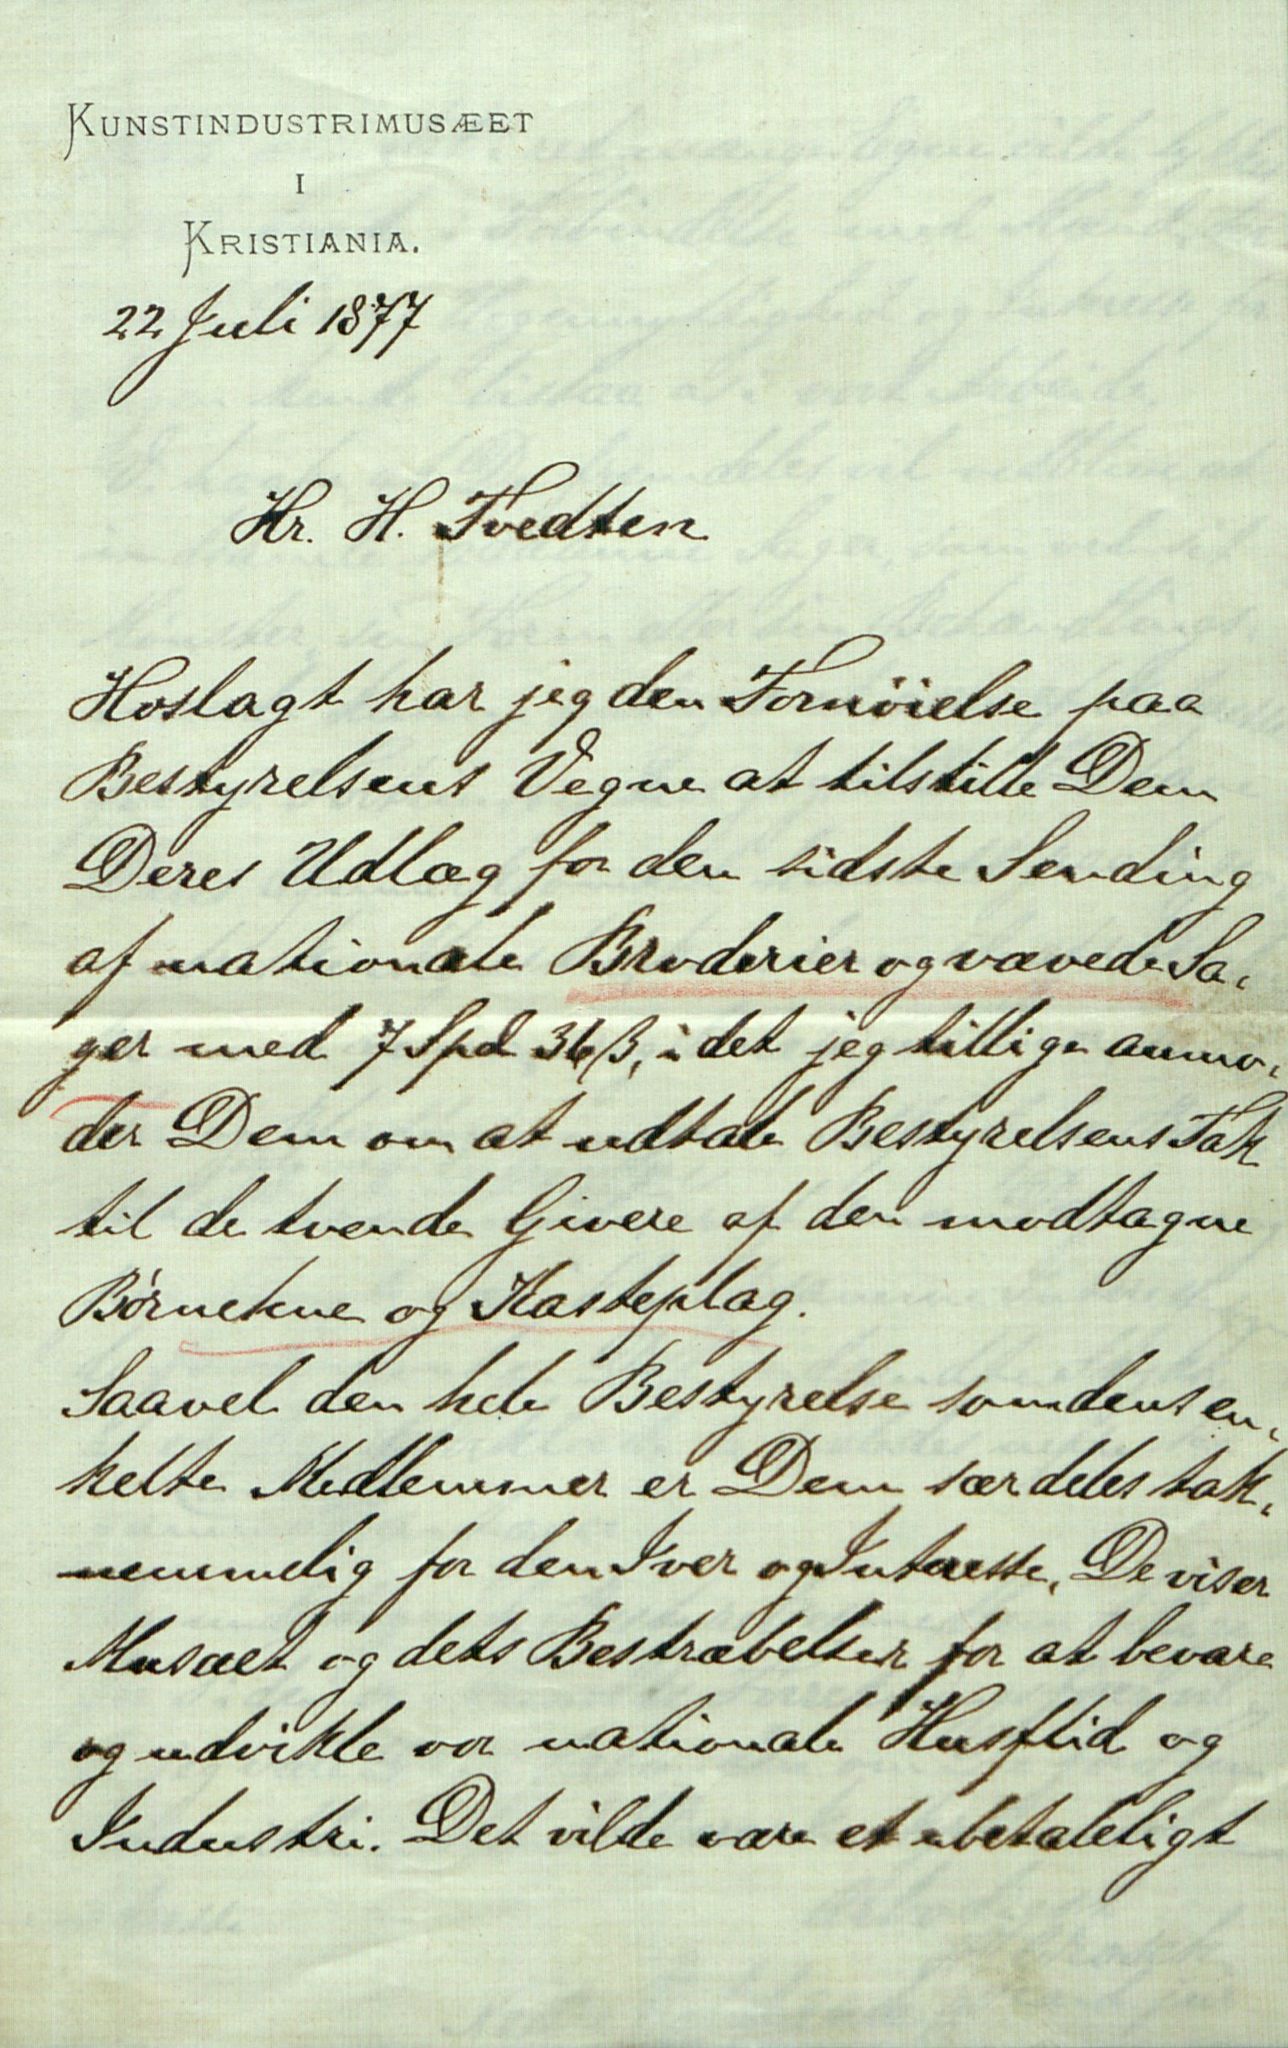 KUNSTINDUSTRIMUSÆET
I
KRISTIANIA.
22 Juli 1877
Hr. H. Tvedten
Hoslagt har jeg den Fornöielse paa
Bestyrelsens Vegne at tilstille Dem
Deres Udlæg for den sidste Sending
af nationale Broderier og vævede Sa-
ger med 7 Spd 36 β, i det jeg tillige anmo-
der Dem om at udtale Bestyrelsens Tak
til de tvende Givere af den modtagne
og Kasteplag.
Saavel den hele Bestyrelse som dens en-
kelte Medlemmer er Dem særdeles tak-
nemmelig for den Iver og Interesse, De viser
Musæet og dets Bestræbelser for at bevare
og udvikle vor nationale Husflid og
Industri. Det vilde være et ubetaleligt